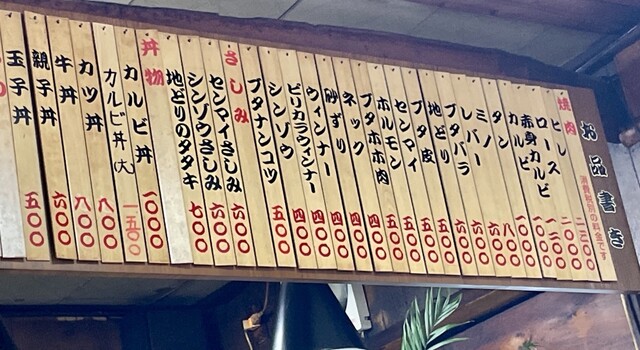 お品書き
焼肉
ヒレ 二二〇〇
ロース 二〇〇〇
赤身カルビ 一二〇〇
カルビ 一〇〇〇
タン 一〇〇〇
ミノ 八〇〇
レバー 六〇〇
ブタバラ 六〇〇
地どり 六〇〇
ブタ皮 五〇〇
センマイ 五〇〇
ホルモン 五〇〇
ブタホホ肉 五〇〇
ネック 四〇〇
砂ずり 四〇〇
ウィンナー 四〇〇
ピリカラウィンナー 四〇〇
シンゾウ 四〇〇
ブタナンコツ 五〇〇
さしみ
センマイさしみ 六〇〇
シンゾウさしみ 六〇〇
地どりのタタキ 七〇〇
丼物
カルビ丼 一〇〇〇
カルビ丼(大) 一五〇〇
カツ丼 八〇〇
牛丼 八〇〇
親子丼 六〇〇
玉子丼 五〇〇